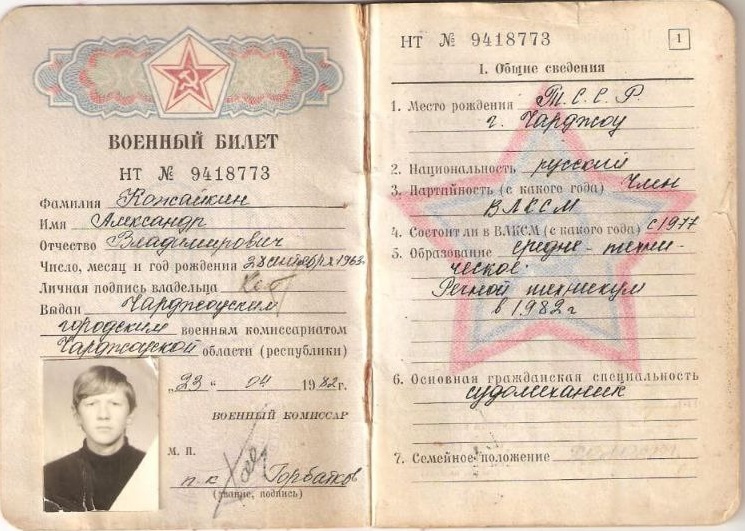 ВОЕННЫЙ БИЛЕТ
НТ № 9418773
Фамилия Кожайкин
Имя Александр
Отчество Владимирович
Число, месяц и год рождения 28 сентября 1963г
Личная подпись владельца
Выдан Чарджоуским
городским военным комиссариатом
Чарджоуской области (республики)
„23“ 04 1982г.
ВОЕННЫЙ КОМИССАР
М. П.
п-к Горбатков
(звание, подпись)
НТ № 9418773
1
I. Общие сведения
1. Место рождения Т.С.С.Р.
г. Чарджоу
2. Национальность русский
3. Партийность (с какого года) Член
ВЛКСМ
4. Состоит ли в ВЛКСМ (с какого года) с 1977
5. Образование средне-техни-
ческое.
Речной техникум
в 1982г
6. Основная гражданская специальность
судомеханик
7. Семейное положение холост